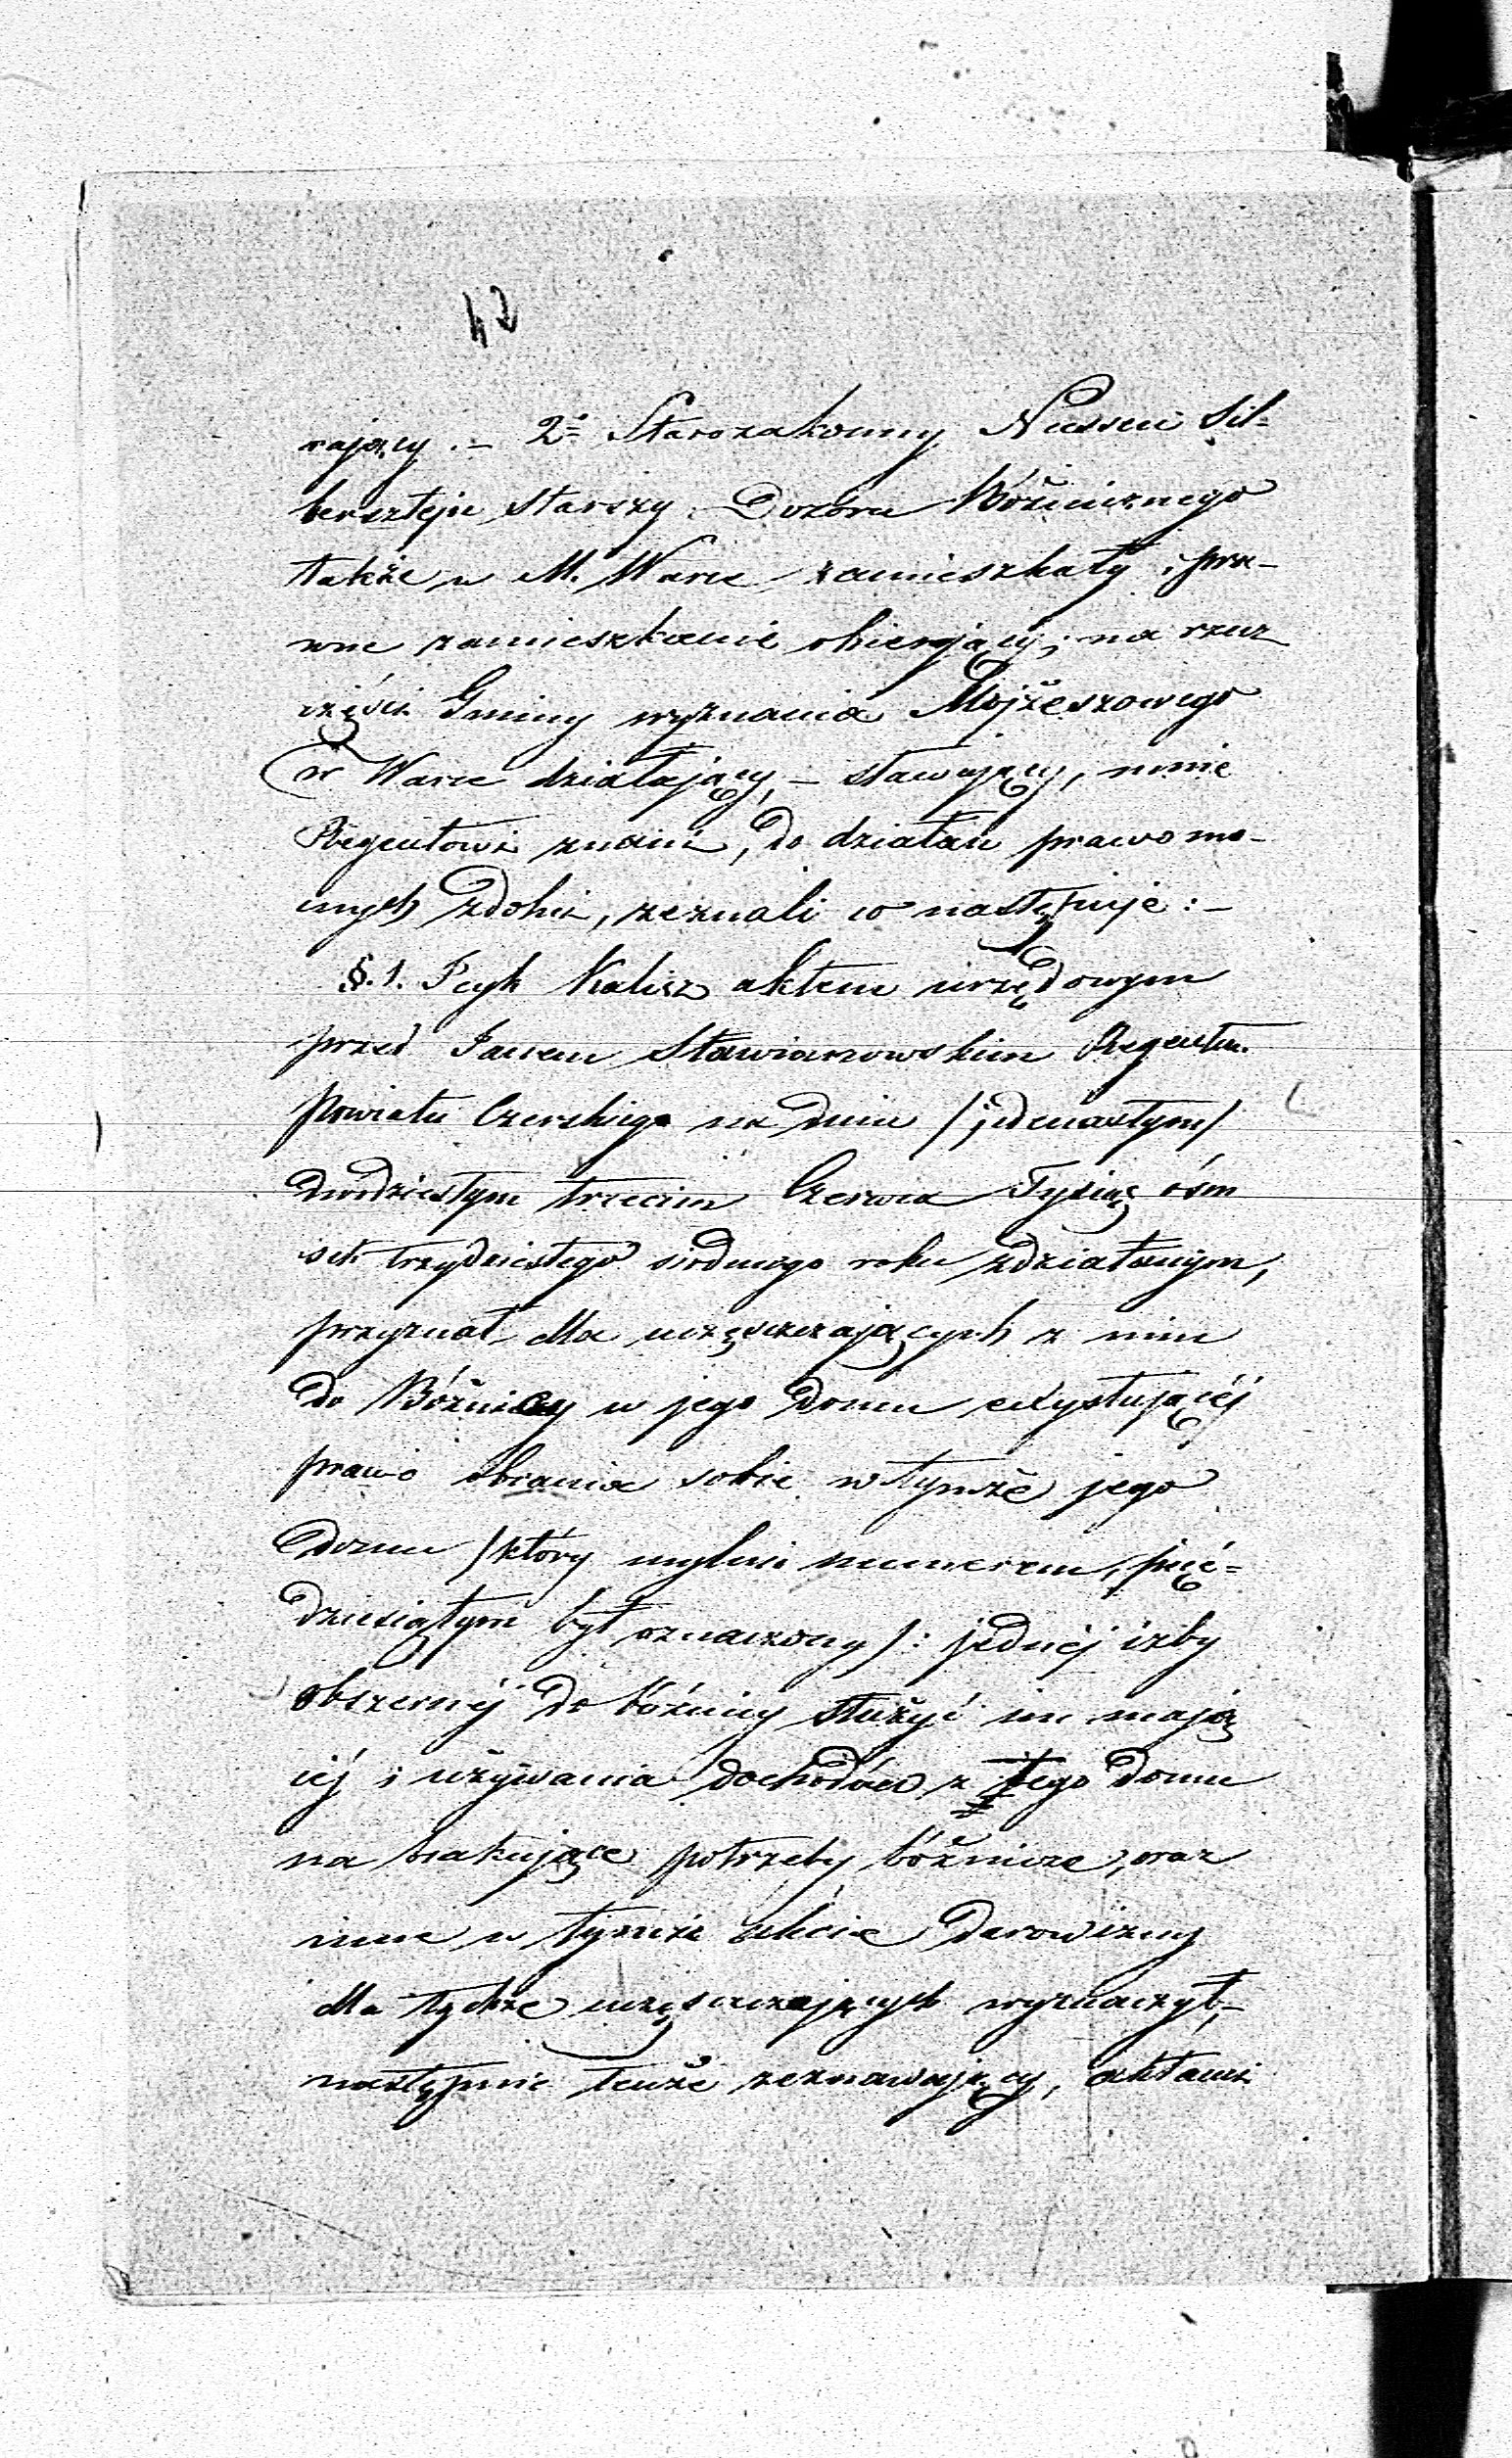 42
rający. – 2º Starozakonny Nussen Sil-
bersztejn Starszy Dozóru Bóżnicznego
także w M. Warce zamieszkały i pra-
wne zamieszkanie obierający, na rzecz
części Gminy wyznania Mojżeszowego
w Warce działający, – stawający, mnie
Regentowi znani, do działań prawomo-
cnych zdolni, zeznali co następuje: –
§. 1. Icyk Kalisz aktem urzędowym
przed Janem Sławianowskim Regentem
Powiatu Czerskiego na dniu /jedenastym/
dwudziestym trzecim Czerwca Tysiąc ośm
set trzydziestego siódmego roku zdziałanym,
przyznał dla uczęszczających z nim
do Bóżnicy w jego domu exystującéj
prawo obrania sobie w tymże jego
domu /który mylnie numerem pięć-
dziesiątym był oznaczony/: jednéj izby
obszernéj do bóżnicy służyć im mają
céj i używania dochodów z tego domu
na brakujące potrzeby bóżnicze, oraz
inne w tymże akcie darowizny
dla tychże uczęszczających wyznaczył, –
następnie tenże zeznawający, aktami